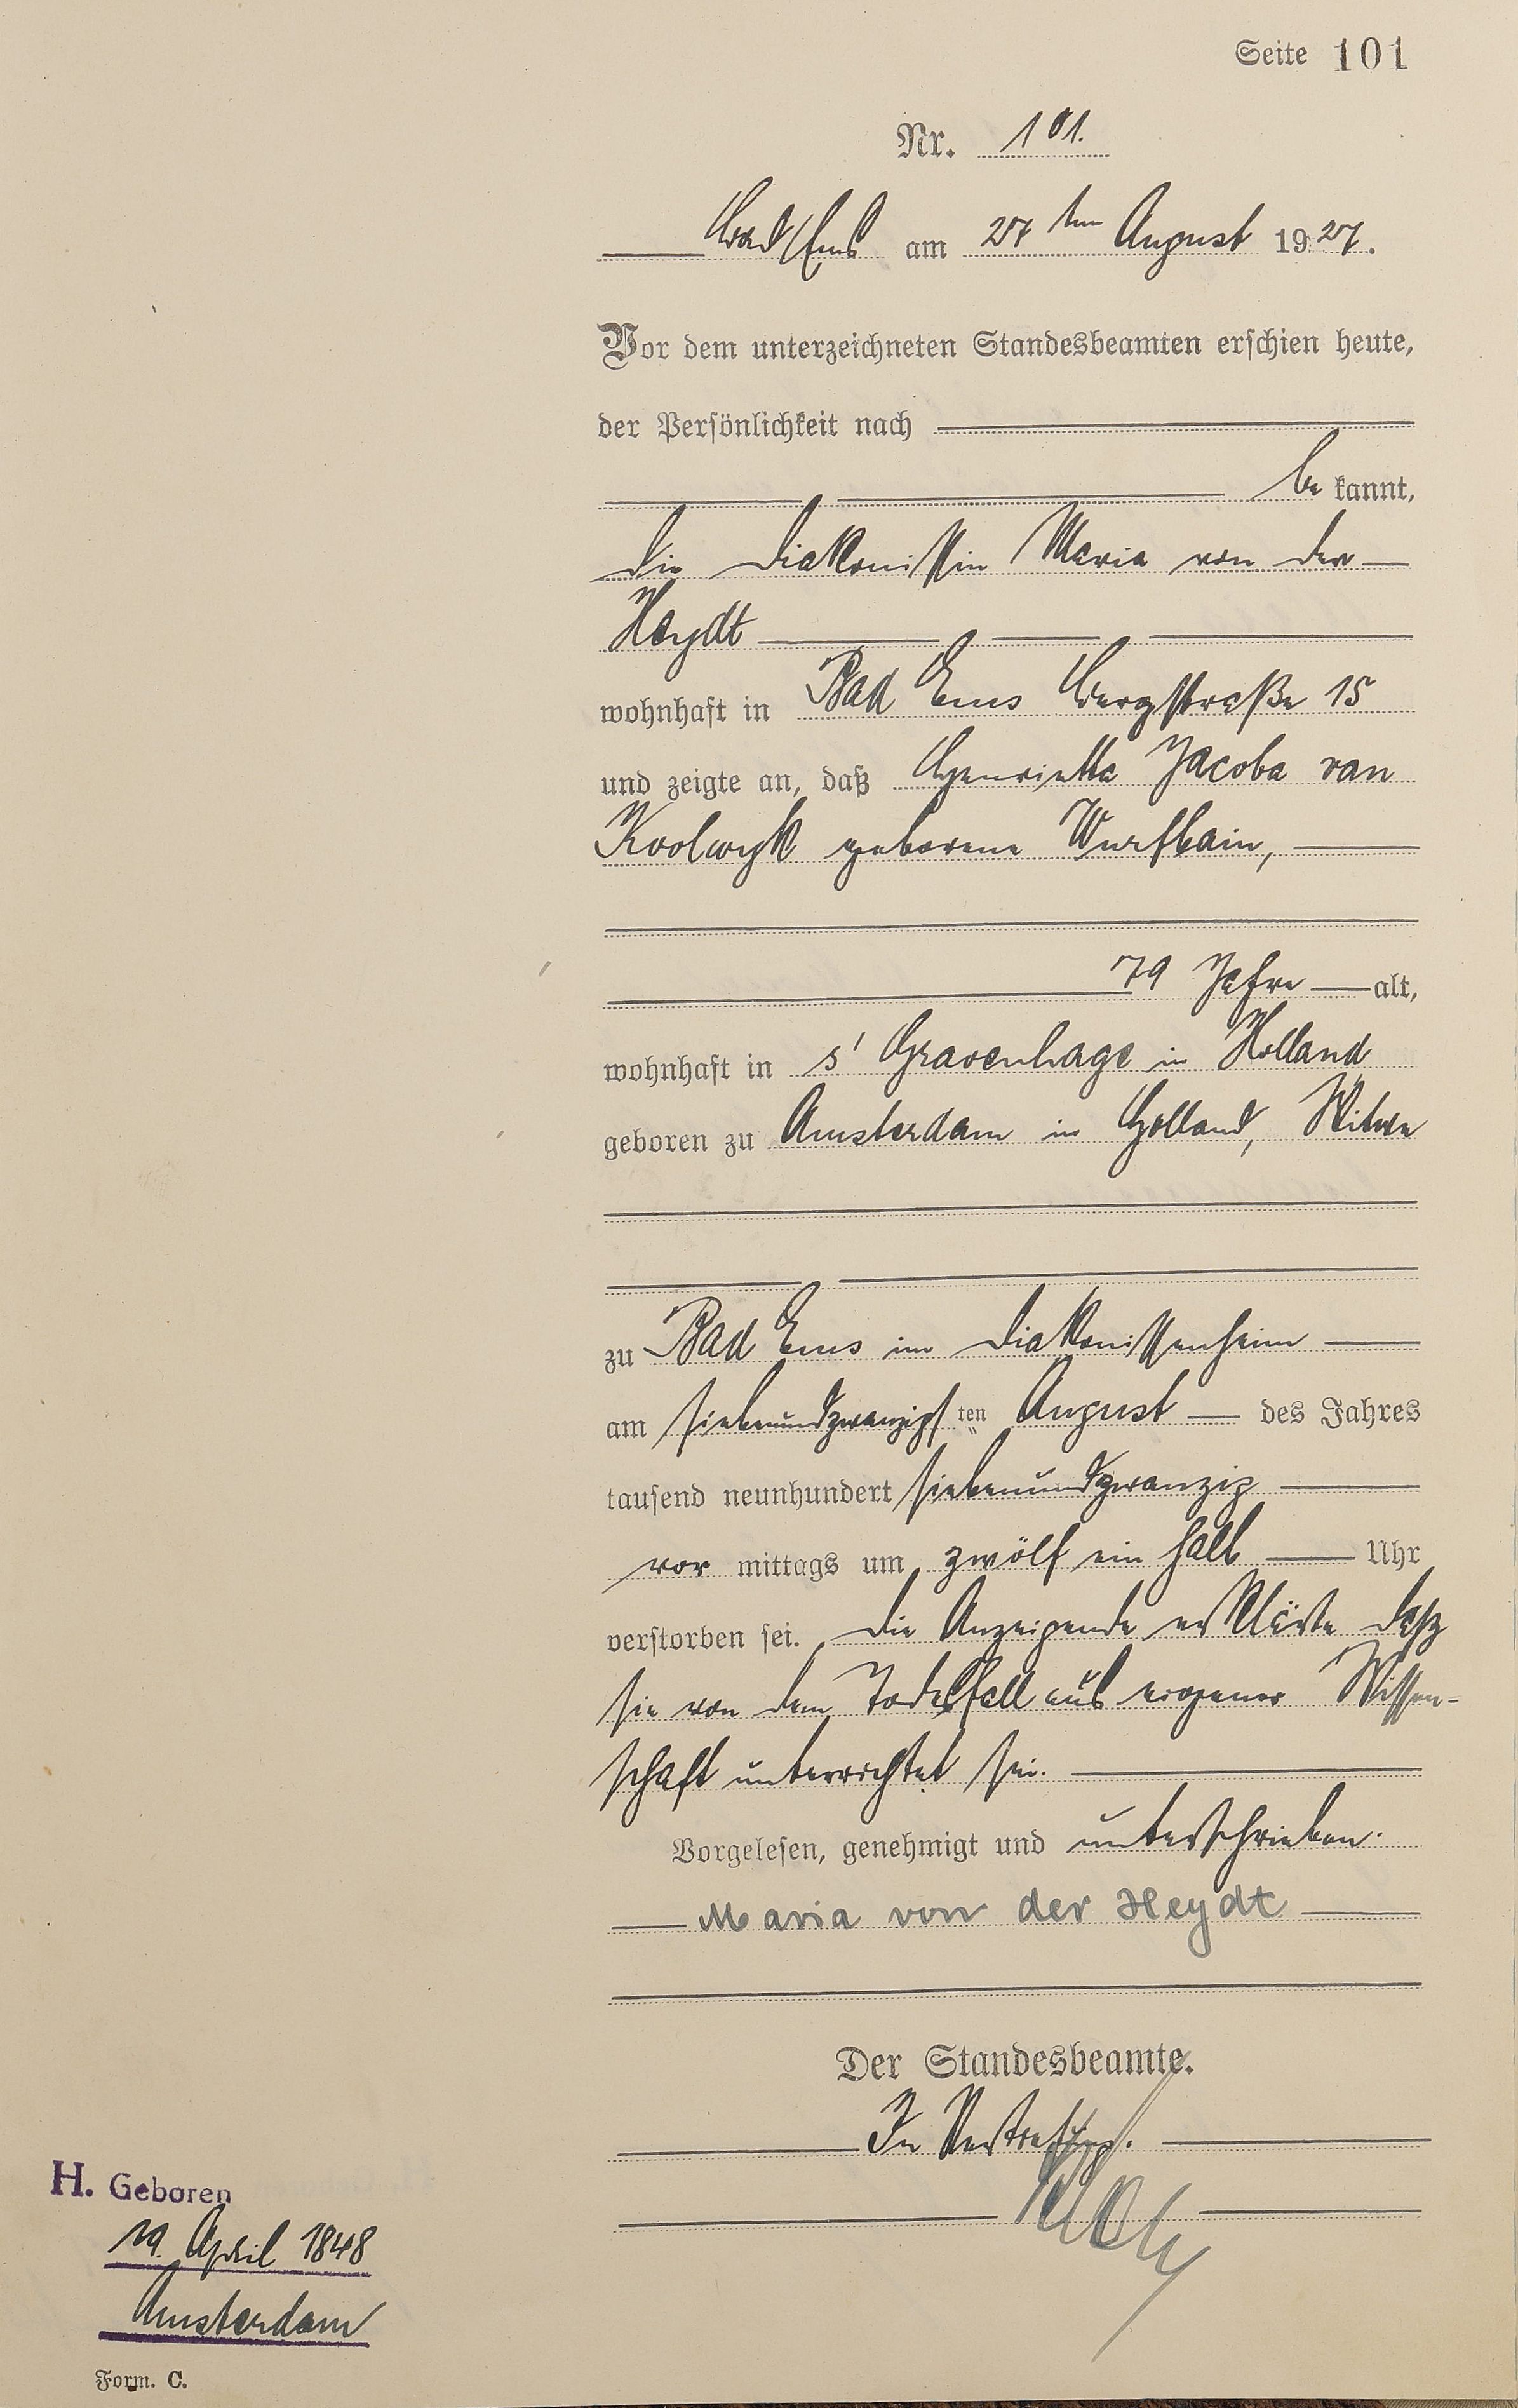 Seite 101
Nr. 101.
Bad Ems am 27ten August 1927.
Vor dem unterzeichneten Standesbeamten erschien heute,
der Persönlichkeit nach
bekannt,
die Diakonissin Maria von der
Heydt
wohnhaft in Bad Ems Bergstraße 15
und zeigte an, daß Henrietta Jacoba van
Koolwyk geborene Wurfbain,
79 Jahre alt,
wohnhaft in s' Gravenhage in Holland
geboren zu Amsterdam in Holland, Witwe
zu Bad Ems im Diakonissenheim
am siebenundzwanzigsten August des Jahres
tausend neunhundert siebenundzwanzig
vor mittags um zwölf ein halb Uhr
verstorben sei. Die Anzeigende erklärte daß
sie von dem Todesfall aus eigener Wissen-
schaft unterrichtet sei.
Vorgelesen, genehmigt und unterschrieben.
Maria von der Heydt
Der Standesbeamte.
In Vertretung.
H. Geboren
19. April 1848
Amsterdam
Form. C.